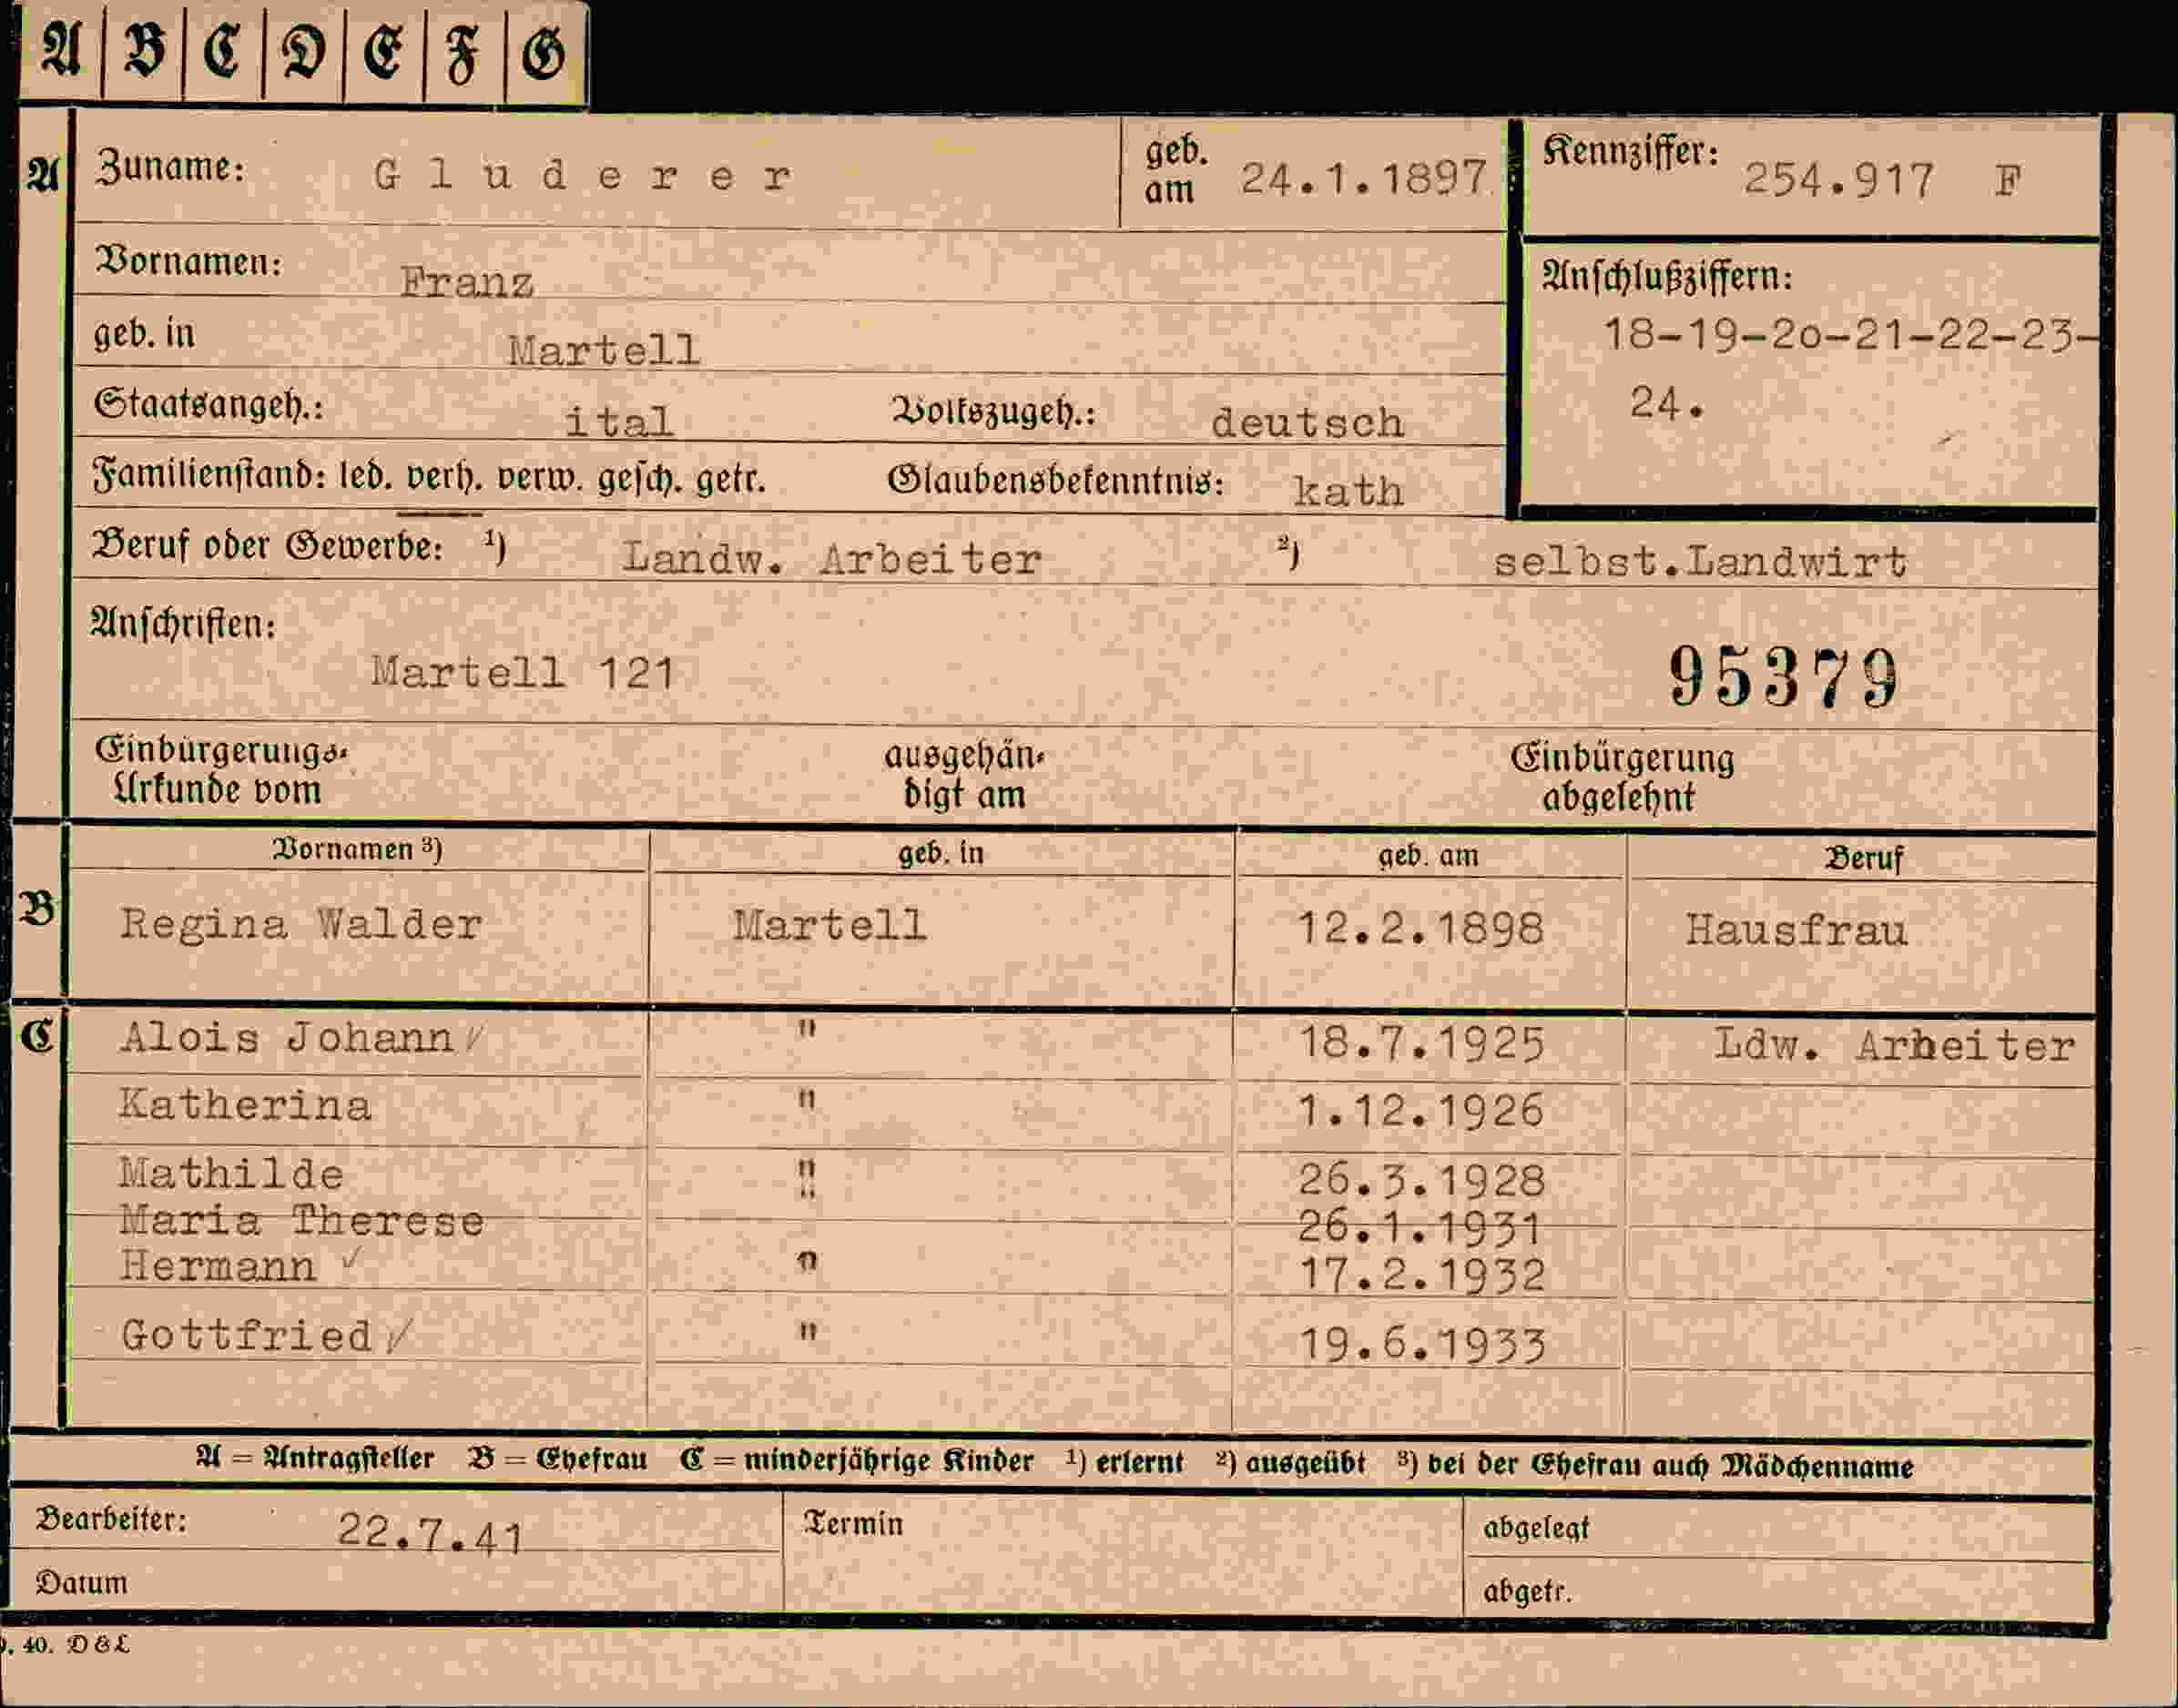 A B C D E F G
A Zuname: Gluderer geb. am 24.1.1897 Kennziffer: 254.917 F
Vornamen: Franz
Anschlußziffern:
geb. in Martell
18-19-2o-21-22-23-
24.
Staatsangeh.: ital Volkszugeh.: deutsch
Familienstand: led. verh. verw. gesch. getr. Glaubensbekenntnis: kath
Beruf oder Gewerbe: ¹) Landw. Arbeiter ²) selbst.Landwirt
Anschriften:
Martell 121
95379
Einbürgerungs-
Urkunde vom
ausgehän-
digt am
Einbürgerung
abgelehnt
Vornamen ³) geb. in geb. am Beruf
B Regina Walder Martell 12.2.1898 Hausfrau
C Alois Johann " 18.7.1925 Ldw. Arheiter
Katherina " 1.12.1926
Mathilde " 26.3.1928
Maria Therese " 26.1.1931
Hermann " 17.2.1932
Gottfried " 19.6.1933
A = Antragsteller B = Ehefrau C = minderjährige Kinder ¹) erlernt ²) ausgeübt ³) bei der Ehefrau auch Mädchenname
Bearbeiter: 22.7.41
Datum
Termin
abgelegt
abgetr.
. 40. D&L